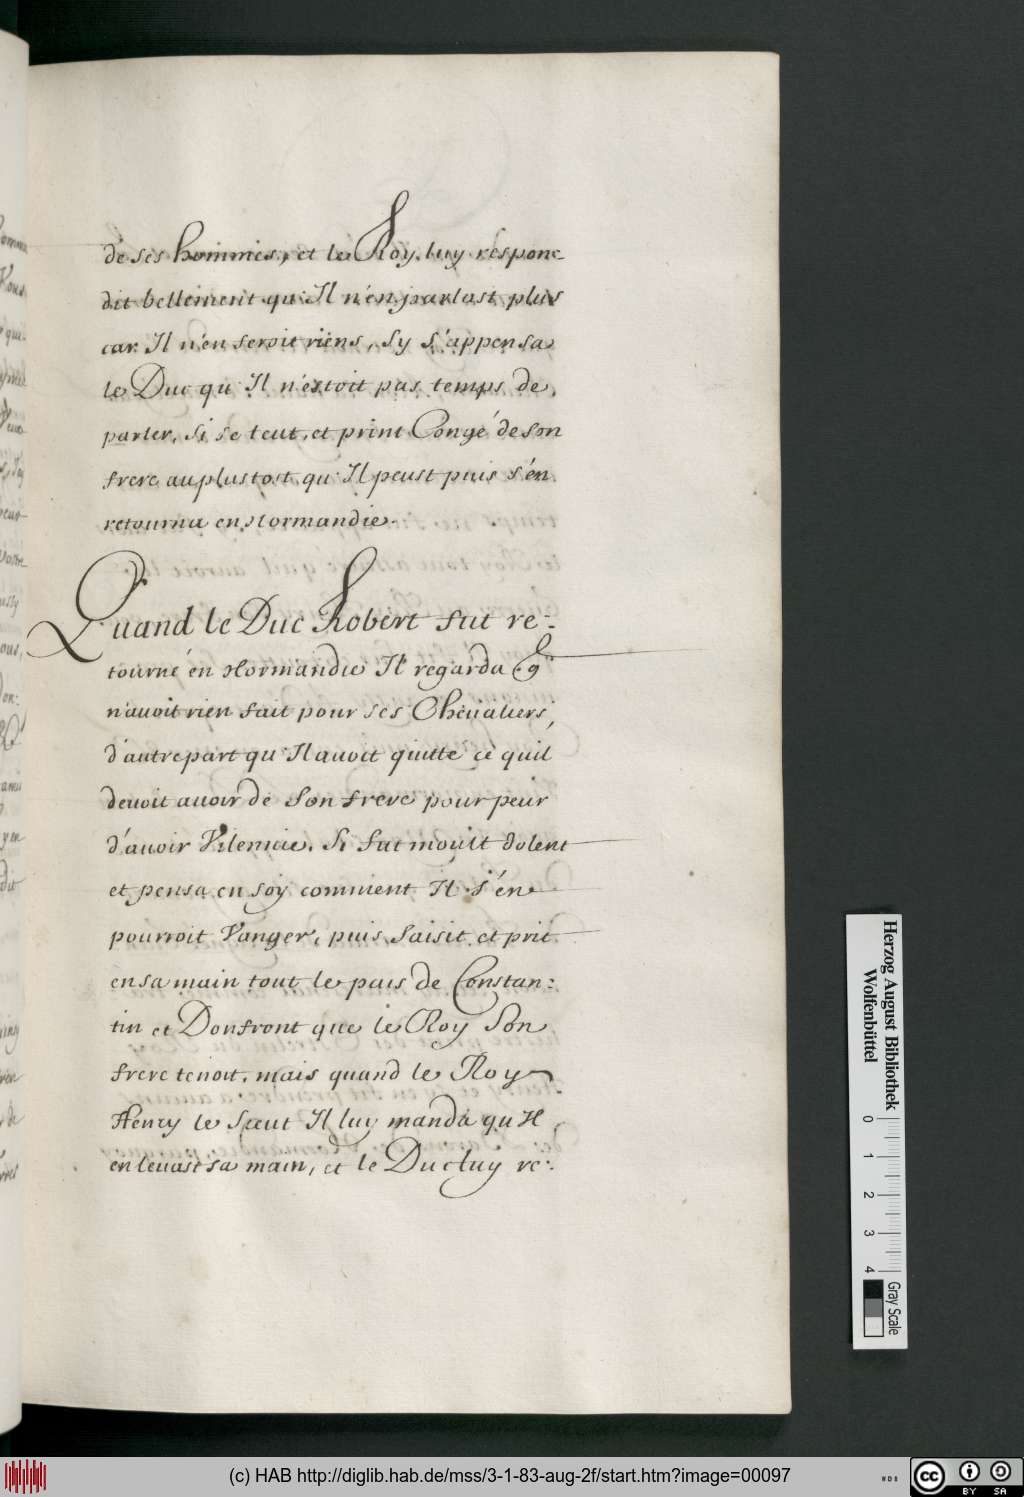 de ses hommes, et le Roy luy respon=
dit bellement qu'Il n'en parlast plus
car Il n'en seroit riens, Sy s'appensa
le Duc qu'Il n'estoit pas temps de
parler, Si se teut, et print Congé de son
frere au plustost qu'Il peust puis s'en
retourna en Normandie.
Quand le Duc Robert fut re=
tourné en Normandie Il regarda q
n'avoit rien fait pour ses Chevaliers,
d'autre part qu'Il avoit quitte ce quil
devoit avoir de Son frere pour peur
d'avoir Vilennie. Si fut moult dolent
et pensa en soy comment Il s'en
pourroit Vanger, puis Saisit et prit
en sa main tout le pais de Constan=
tin et Donfront que le Roy Son
frere tenoit, mais quand le Roy
Henry le Sceut Il luy manda qu'Il
en levast sa main, et le Duc luy re=
Herzog August Bibliothek
Wolfenbüttel
0 1 2 3 4
Gray Scale
(c) HAB http://diglib.hab.de/mss/3-1-83-aug-2f/start.htm?image=00097
WDB
cc BY SA